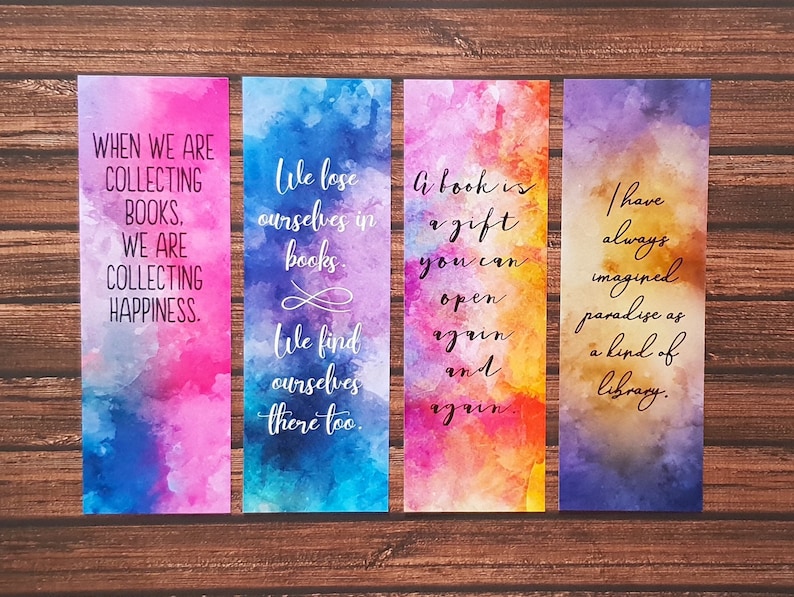 WHEN WE ARE
COLLECTING
BOOKS,
WE ARE
COLLECTING
HAPPINESS.
We lose
ourselves in
books.
We find
ourselves
there too.
A book is
a gift
you can
open
again
and
again.
I have
always
imagined
paradise as
a kind of
library.